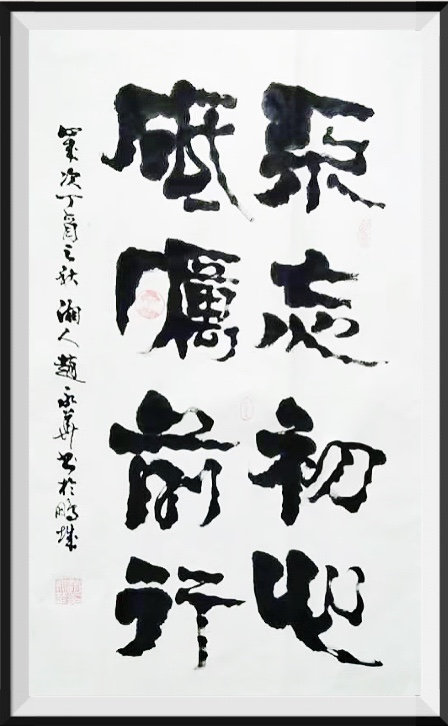 不忘初心
砥礪前行
歲次丁酉之秋湘人趙永華書於鵬城